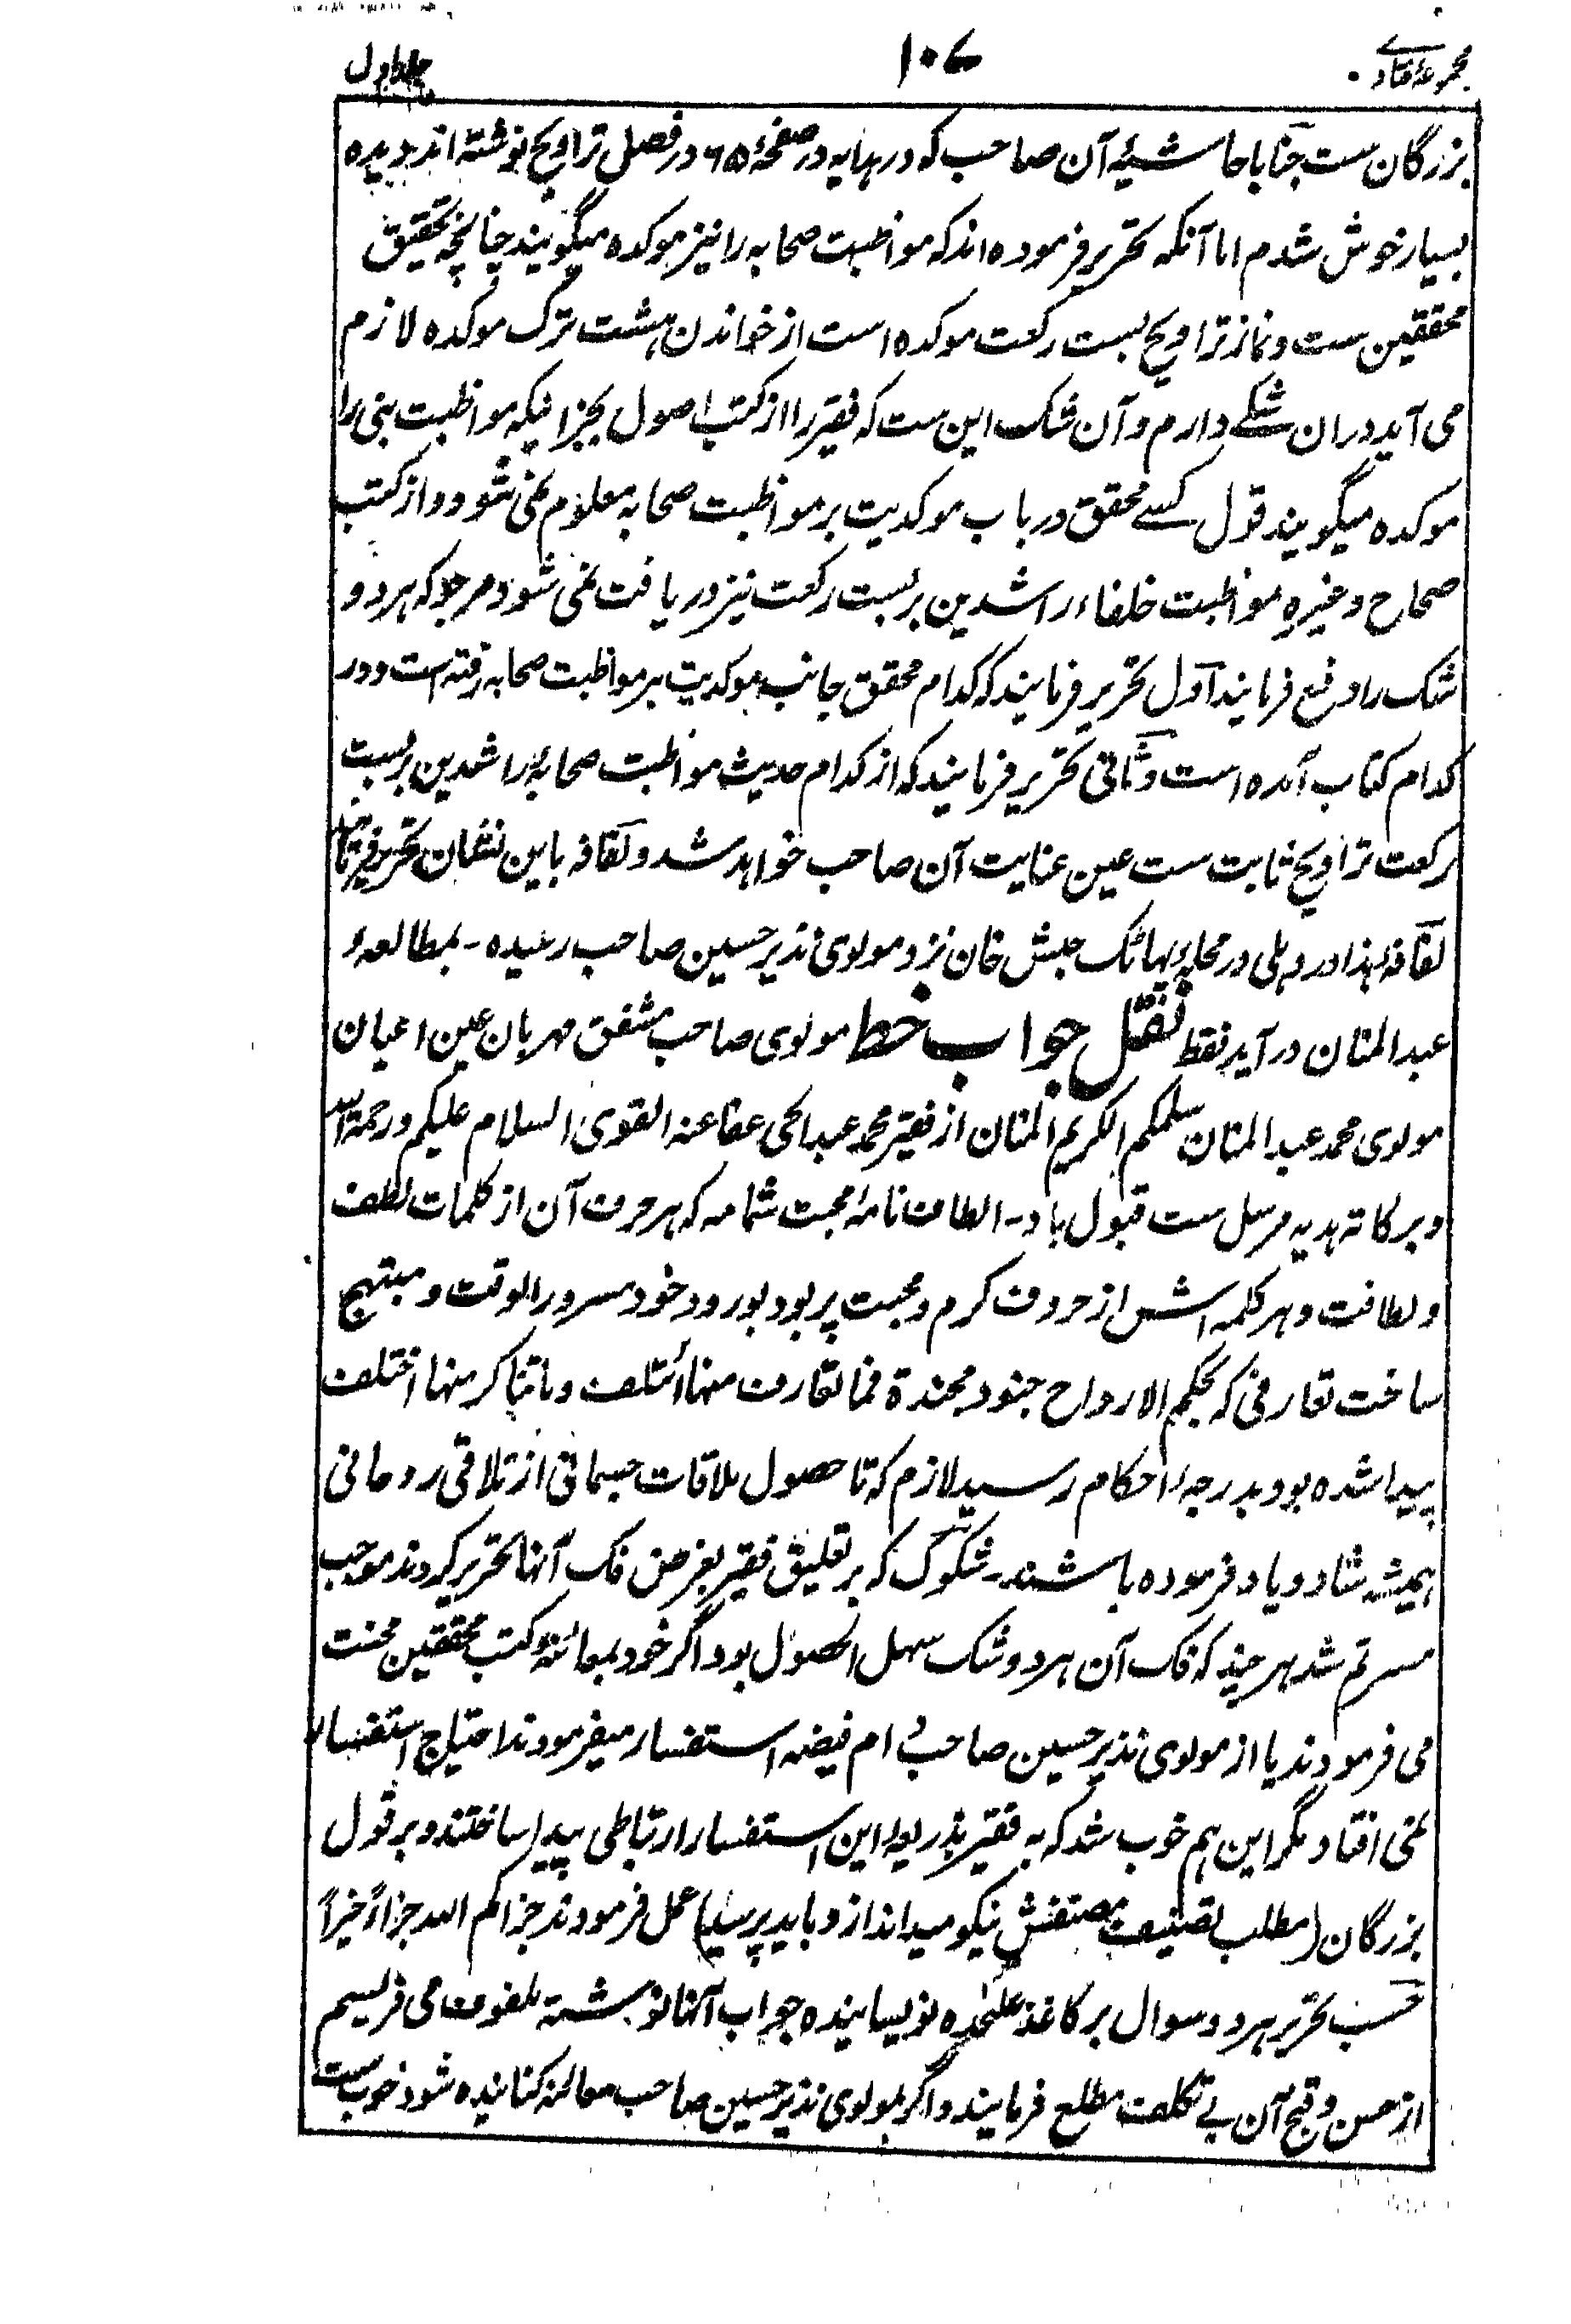 مجموعۂ فتاوے
۱۰۷
جلد اول
بزرگان ست جنابا حاشیۂ آن صاحب که در ہدایه در صفحۂ ۶۵ در فصل تراویح نوشته اند دیده
بسیار خوش شدم اما آنکه تحریر فرموده اند که مواظبت صحابه را نیز موکده میگویند چنانچه تحقیق
محققین ست و نماز تراویح بست رکعت موکده است از خواندن ہشت ترک موکده لازم
می آید دران شکے دارم و آن شک این ست که فقیر را از کتب اصول بجز اینکه مواظبت نبی را
موکده میگویند قول کسے محقق در باب موکدیت بر مواظبت صحابه معلوم نمی شود و از کتب
صحاح و غیره مواظبت خلفاء راشدین بر بست رکعت نیز دریافت نمی شود مرجو که ہر دو
شک را دفع فرمایند اول تحریر فرمایند که کدام محقق جانب موکدیت بر مواظبت صحابه رفته است و در
کدام کتاب آمده است و ثانی تحریر فرمایند که از کدام حدیث مواظبت صحابۂ راشدین بر بست
رکعت تراویح ثابت ست عین عنایت آن صاحب خواہد شد و لفافه باین نشان تحریر فرمایند
لفافه ہذا در دہلی در محلۂ پہاٹک حبش خان نزد مولوی نذیر حسین صاحب رسیده - بمطالعۂ
عبد المنان در آید فقط نقل جواب خط مولوی صاحب مشفق مہربان عین اعیان
مولوی محمد عبد المنان سلمکم الکریم المنان از فقیر محمد عبد الحی عفا عنه القوی السلام علیکم ورحمة الله
و برکاته ہدیه مرسل ست قبول باد - الطاف نامۂ محبت شمامه که ہر حرف آن از کلمات لطف
و لطافت و ہر کلمه اش از حروف کرم و محبت پر بود بورود خود مسرور الوقت و مبتہج
ساخت تعارفی که بحکم الارواح جنود مجندة فما تعارف منہا ائتلف و ما تناکر منہا اختلف
پیدا شده بود بدرجۂ احکام رسید لازم که تا حصول ملاقات جسمانی از تلاقی روحانی
ہمیشه شاد و یاد فرموده باشند - شکوک که بر تعلیق فقیر بغرض فک آنہا تحریر کردند موجب
مسرتم شد ہر چند که فک آن ہر دو شک سہل الحصول بود اگر خود بمعائنۂ کتب محققین محنت
می فرمودند یا از مولوی نذیر حسین صاحب دام فیضه استفسار میفرمودند احتیاج استفسار
نمی افتاد مگر این ہم خوب شد که به فقیر بذریعۂ این استفسار ارتباطی پیدا ساختند و بر قول
بزرگان (مطلب تصنیف مصنفش نیکو میداند ازو باید پرسید) عمل فرمودند جزاکم الله جزاءً خیراً
حسب تحریر ہر دو سوال بر کاغذ علٰحده نویسانیده جواب آنہا نوشته ملفوف می فریسم
از حسن و قبح آن بے تکلف مطلع فرمایند و اگر بمولوی نذیر حسین صاحب معائنه کنانیده شود خوب ست